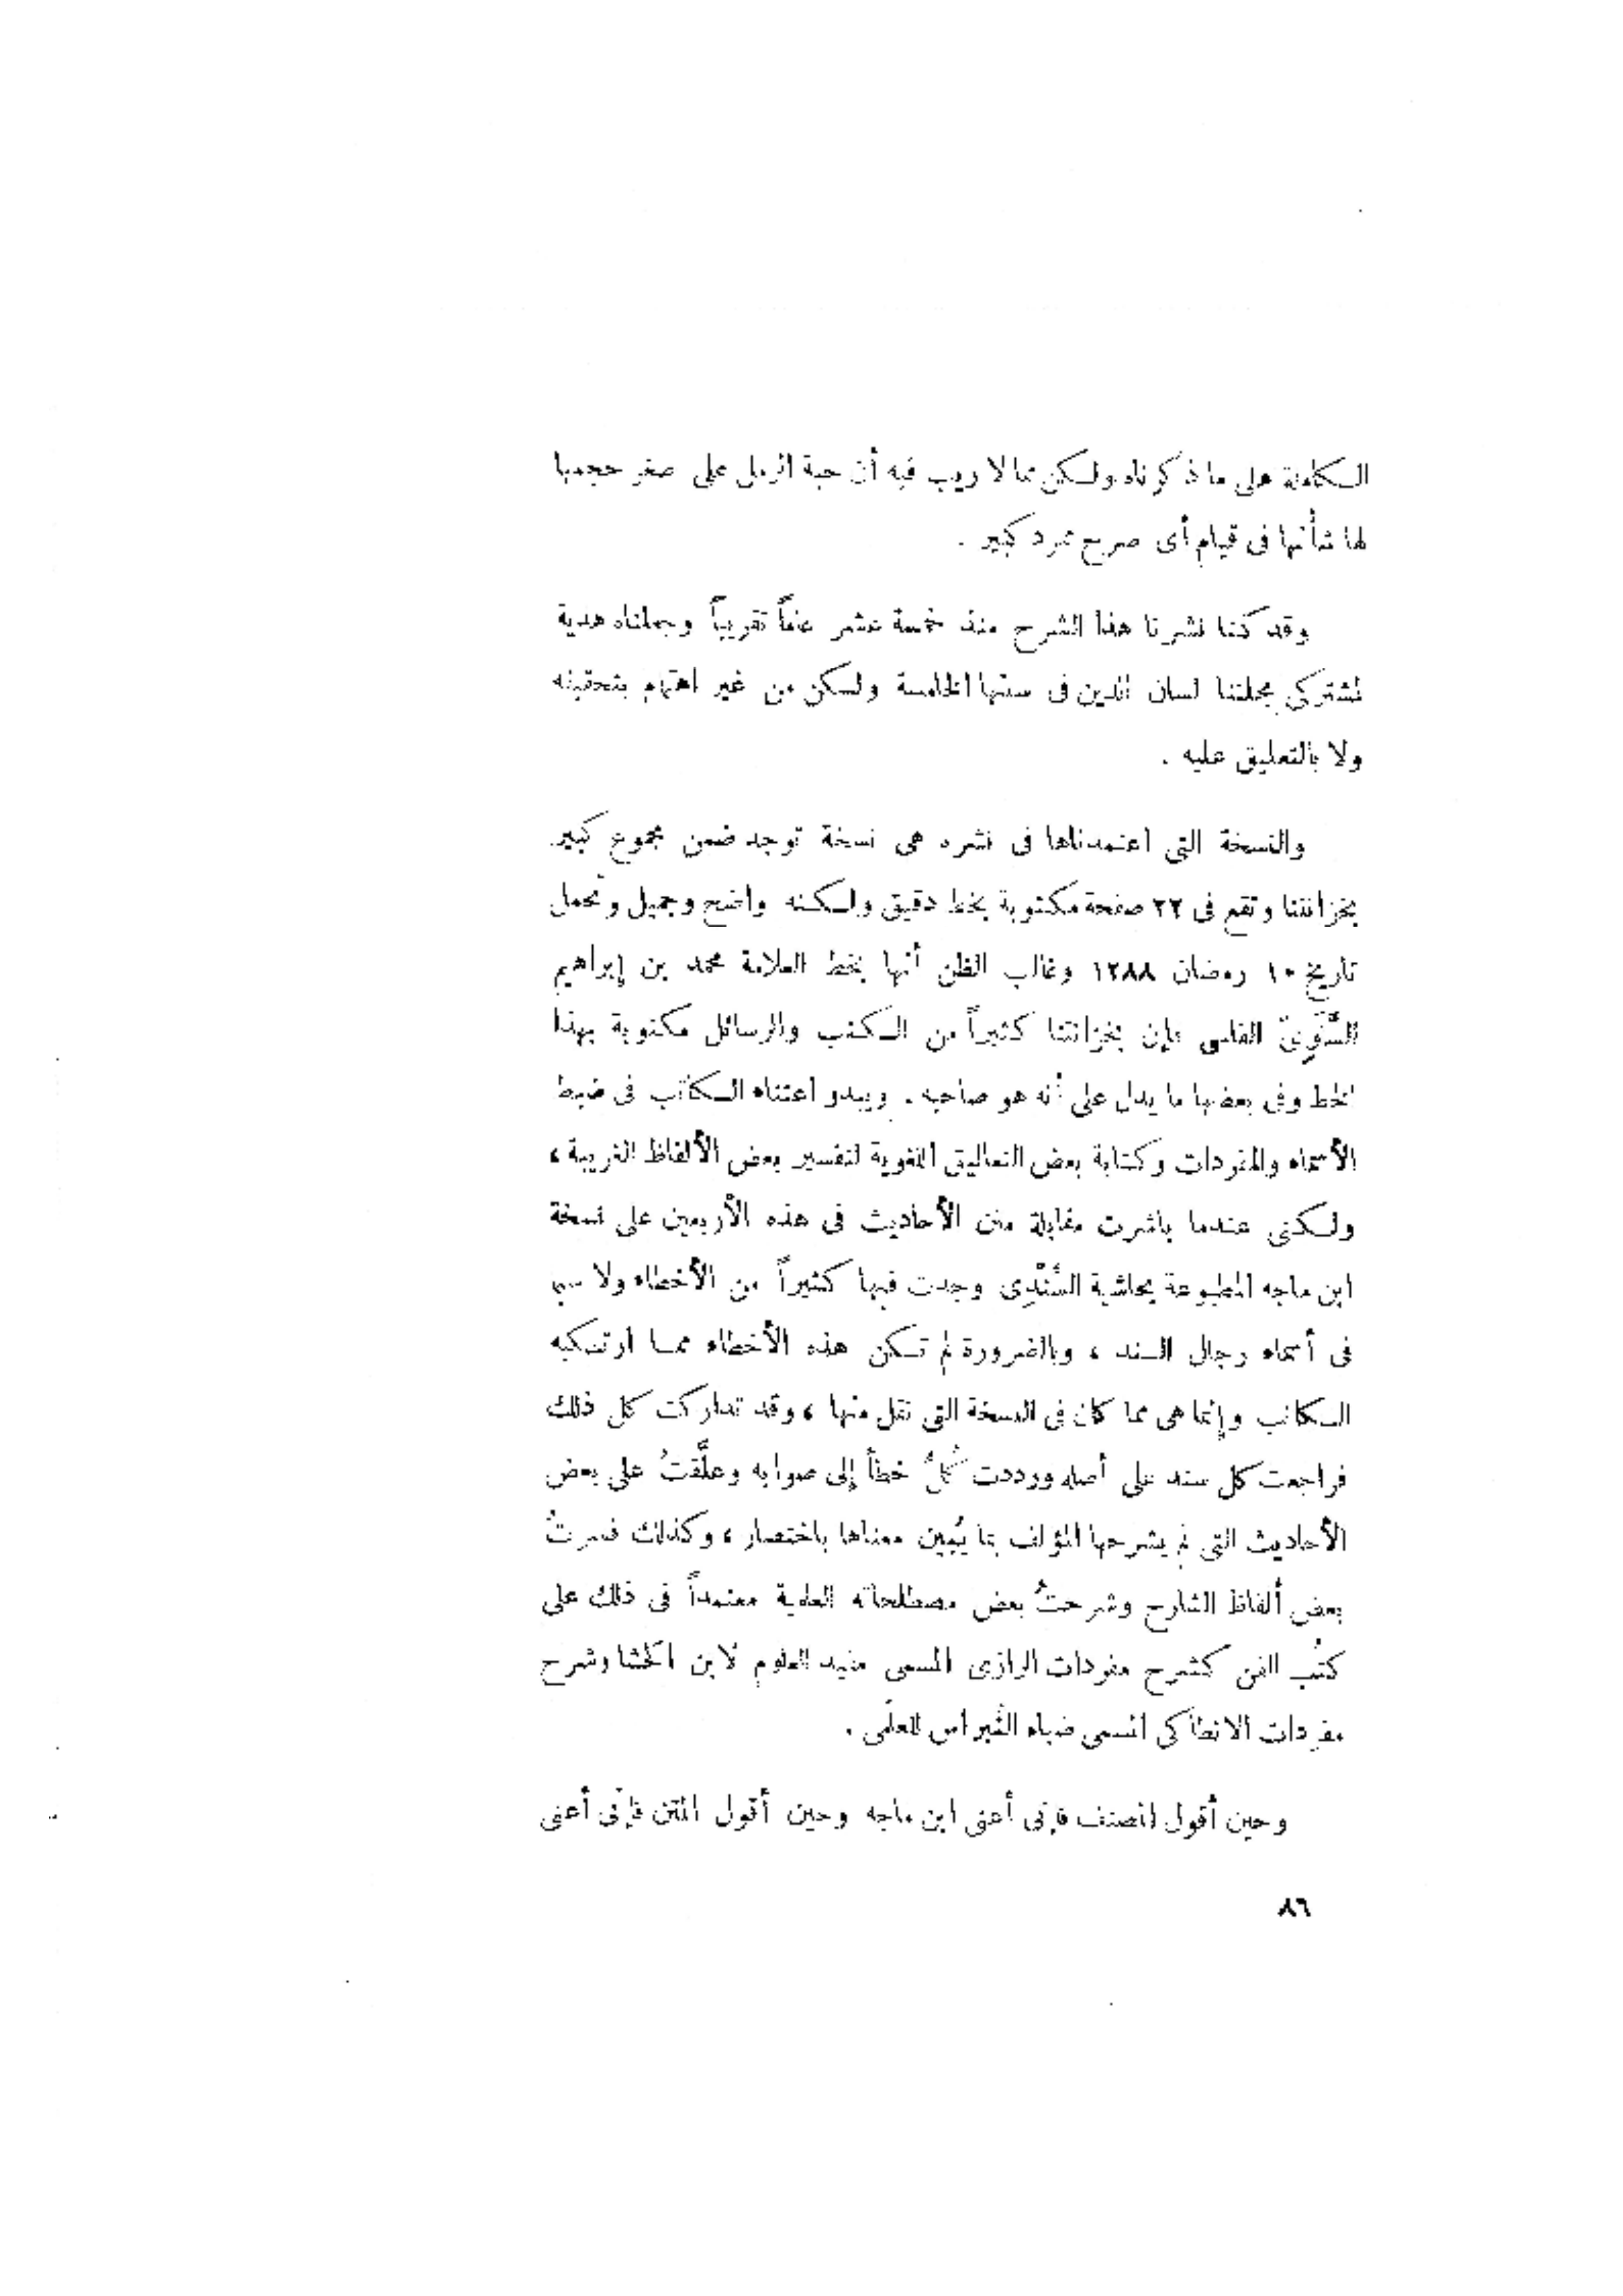 الكاملة على ما ذكرناه ولكن مما لا ريب فيه أن حبة الرمل على صغر حجمها
لها شأنها فى قيام أى صرح ممرد كبير .
وقد كنا نشرنا هذا الشرح منذ خمسة عشر عاماً تقريباً وجعلناه هدية
لمشتركى مجلتنا لسان الدين فى سنتها الخامسة ولكن من غير اهتمام بتحقيقه
ولا بالتعليق عليه .
والنسخة التى اعتمدناها فى نشره هى نسخة توجد ضمن مجموع كبير
بخزانتنا وتقع فى ٢٢ صفحة مكتوبة بخط دقيق ولكنه واضح وجميل وتحمل
تاريخ ١٠ رمضان ١٢٨٨ وغالب الظن أنها بخط العلامة محمد بن إبراهيم
الفاسى فإن بخزانتنا كثيراً من الكتب والرسائل مكتوبة بهذا
الخط وفى بعضها ما يدل على أنه هو صاحبه . ويبدو اعتناء الكاتب فى ضبط
الأسماء والمفردات وكتابة بعض التعاليق اللغوية لتفسير بعض الألفاظ الغريبة ،
ولكنى عندما باشرت مقابلة متن الأحاديث فى هذه الأربعين على نسخة
ابن ماجه المطبوعة بحاشية السِّنْدِى وجدت فيها كثيراً من الأخطاء ولا سيما
فى أسماء رجال السند ، وبالضرورة لم تكن هذه الأخطاء مما ارتكبه
الكاتب وإنما هى مما كان فى النسخة التى نقل منها ، وقد تداركت كل ذلك
فراجعت كل سند على أصله ورددت كُلَّ خطأ إلى صوابه وعلَّقتُ على بعض
الأحاديث التى لم يشرحها المؤلف بما يُبين معناها باختصار ، وكذلك فسرتُ
بعض ألفاظ الشارح وشرحتُ بعض مصطلحاته العلمية معتمداً فى ذلك على
كتب الفن كشرح مفردات الرازى المسمى مفيد العلوم لابن الحشا وشرح
مفردات الانطاكى المسمى ضياء النبراس للعلمى .
وحين أقول المصنف فإنى أعنى ابن ماجه وحين أقول المتن فإنى أعنى
٨٦